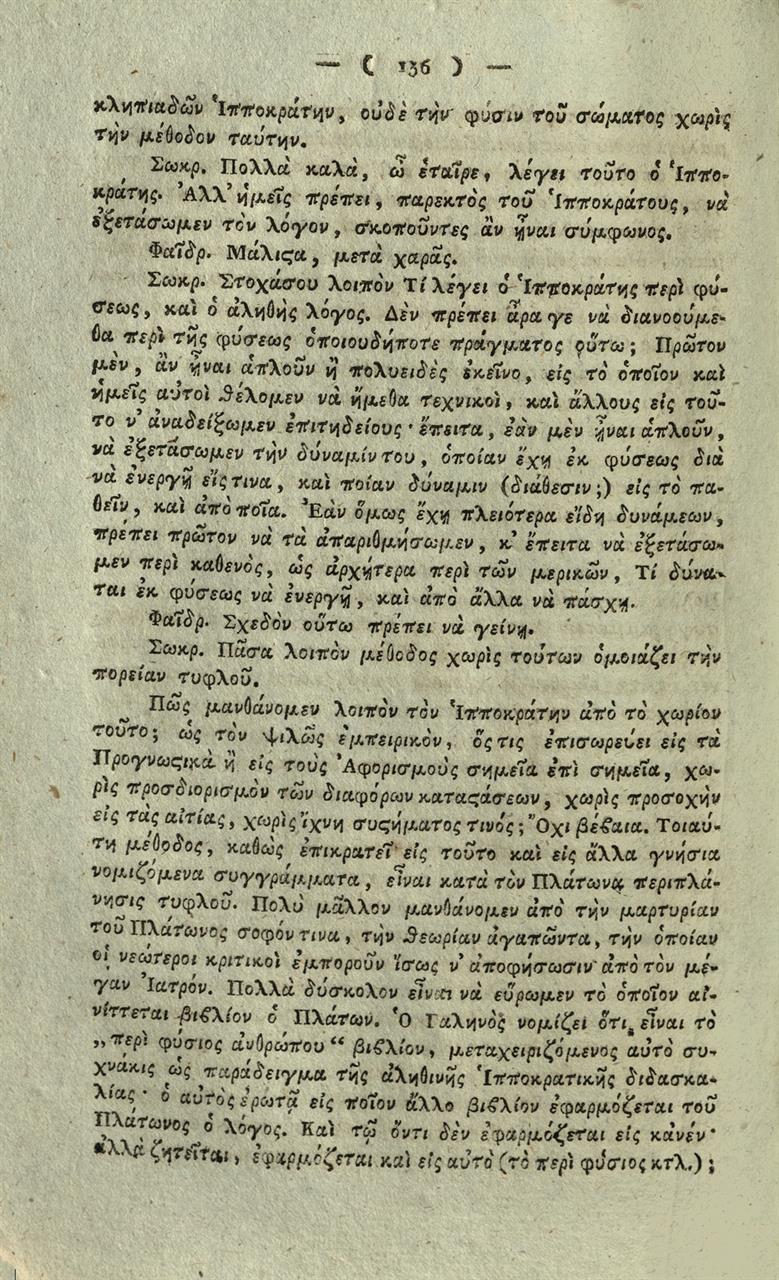 — ( 136 ) —
κληπιαδῶν Ἱπποκράτην, οὐδὲ τὴν φύσιν τοῦ σώματος χωρὶς
τὴν μέθοδον ταύτην.
Σωκρ. Πολλὰ καλὰ, ὦ ἑταῖρε, λέγει τοῦτο ὁ Ἱππο-
κράτης. Ἀλλ' ἡμεῖς πρέπει, παρεκτὸς τοῦ Ἱπποκράτους, νὰ
ἐξετάσωμεν τὸν λόγον, σκοποῦντες ἂν ᾖναι σύμφωνος.
Φαῖδρ. Μάλιϛα, μετὰ χαρᾶς.
Σωκρ. Στοχάσου λοιπὸν Τί λέγει ὁ Ἱπποκράτης περὶ φύ-
σεως, καὶ ὁ ἀληθὴς λόγος. Δὲν πρέπει ἆρα γε νὰ διανοούμε-
θα περὶ τῆς φύσεως ὁποιουδήποτε πράγματος οὕτω; Πρῶτον
μὲν, ἂν ᾖναι ἁπλοῦν ἢ πολυειδὲς ἐκεῖνο, εἰς τὸ ὁποῖον καὶ
ἡμεῖς αὐτοὶ θέλομεν νὰ ἤμεθα τεχνικοὶ, καὶ ἄλλους εἰς τοῦ-
το ν' ἀναδείξωμεν ἐπιτηδείους· ἔπειτα, ἐὰν μὲν ᾖναι ἁπλοῦν,
νὰ ἐξετάσωμεν τὴν δύναμίν του, ὁποίαν ἔχῃ ἐκ φύσεως διὰ
νὰ ἐνεργῇ εἴς τινα, καὶ ποίαν δύναμιν (διάθεσιν;) εἰς τὸ πα-
θεῖν, καὶ ἀπὸ ποῖα. Ἐὰν ὅμως ἔχῃ πλειότερα εἴδη δυνάμεων,
πρέπει πρῶτον νὰ τὰ ἀπαριθμήσωμεν, κ' ἔπειτα νὰ ἐξετάσω-
μεν περὶ καθενὸς, ὡς ἀρχήτερα περὶ τῶν μερικῶν, Τί δύνα-
ται ἐκ φύσεως νὰ ἐνεργῇ, καὶ ἀπὸ ἄλλα νὰ πάσχῃ.
Φαῖδρ. Σχεδὸν οὕτω πρέπει νὰ γείνῃ.
Σωκρ. Πᾶσα λοιπὸν μέθοδος χωρὶς τούτων ὁμοιάζει τὴν
πορείαν τυφλοῦ.
Πῶς μανθάνομεν λοιπὸν τὸν Ἱπποκράτην ἀπὸ τὸ χωρίον
τοῦτο; ὡς τὸν ψιλῶς ἐμπειρικὸν, ὅς τις ἐπισωρεύει εἰς τὰ
Προγνωϛικὰ ἢ εἰς τοὺς Ἀφορισμοὺς σημεῖα ἐπὶ σημεῖα, χω-
ρὶς προσδιορισμὸν τῶν διαφόρων καταϛάσεων, χωρὶς προσοχὴν
εἰς τὰς αἰτίας, χωρὶς ἴχνη συϛήματος τινός; Ὄχι βέβαια. Τοιαύ-
τη μέθοδος, καθὼς ἐπικρατεῖ εἰς τοῦτο καὶ εἰς ἄλλα γνήσια
νομιζόμενα συγγράμματα, εἶναι κατὰ τὸν Πλάτωνα περιπλά-
νησις τυφλοῦ. Πολὺ μᾶλλον μανθάνομεν ἀπὸ τὴν μαρτυρίαν
τοῦ Πλάτωνος σοφόν τινα, τὴν θεωρίαν ἀγαπῶντα, τὴν ὁποίαν
οἱ νεώτεροι κριτικοὶ ἐμποροῦν ἴσως ν' ἀποφήσωσιν ἀπὸ τὸν μέ-
γαν Ἰατρόν. Πολλὰ δύσκολον εἶναι νὰ εὕρωμεν τὸ ὁποῖον αἰ-
νίττεται βιβλίον ὁ Πλάτων. Ὁ Γαληνὸς νομίζει ὅτι εἶναι τὸ
„περὶ φύσιος ἀνθρώπου“ βιβλίον, μεταχειριζόμενος αὐτὸ συ-
χνάκις ὡς παράδειγμα τῆς ἀληθινῆς Ἱπποκρατικῆς διδασκα-
λίας· ὁ αὐτὸς ἐρωτᾷ εἰς ποῖον ἄλλο βιβλίον ἐφαρμόζεται τοῦ
Πλάτωνος ὁ λόγος. Καὶ τῷ ὄντι δὲν ἐφαρμόζεται εἰς κἀνέν·
ἀλλὰ ζητεῖται, ἐφαρμόζεται καὶ εἰς αὐτὸ (τὸ περὶ φύσιος κτλ.);